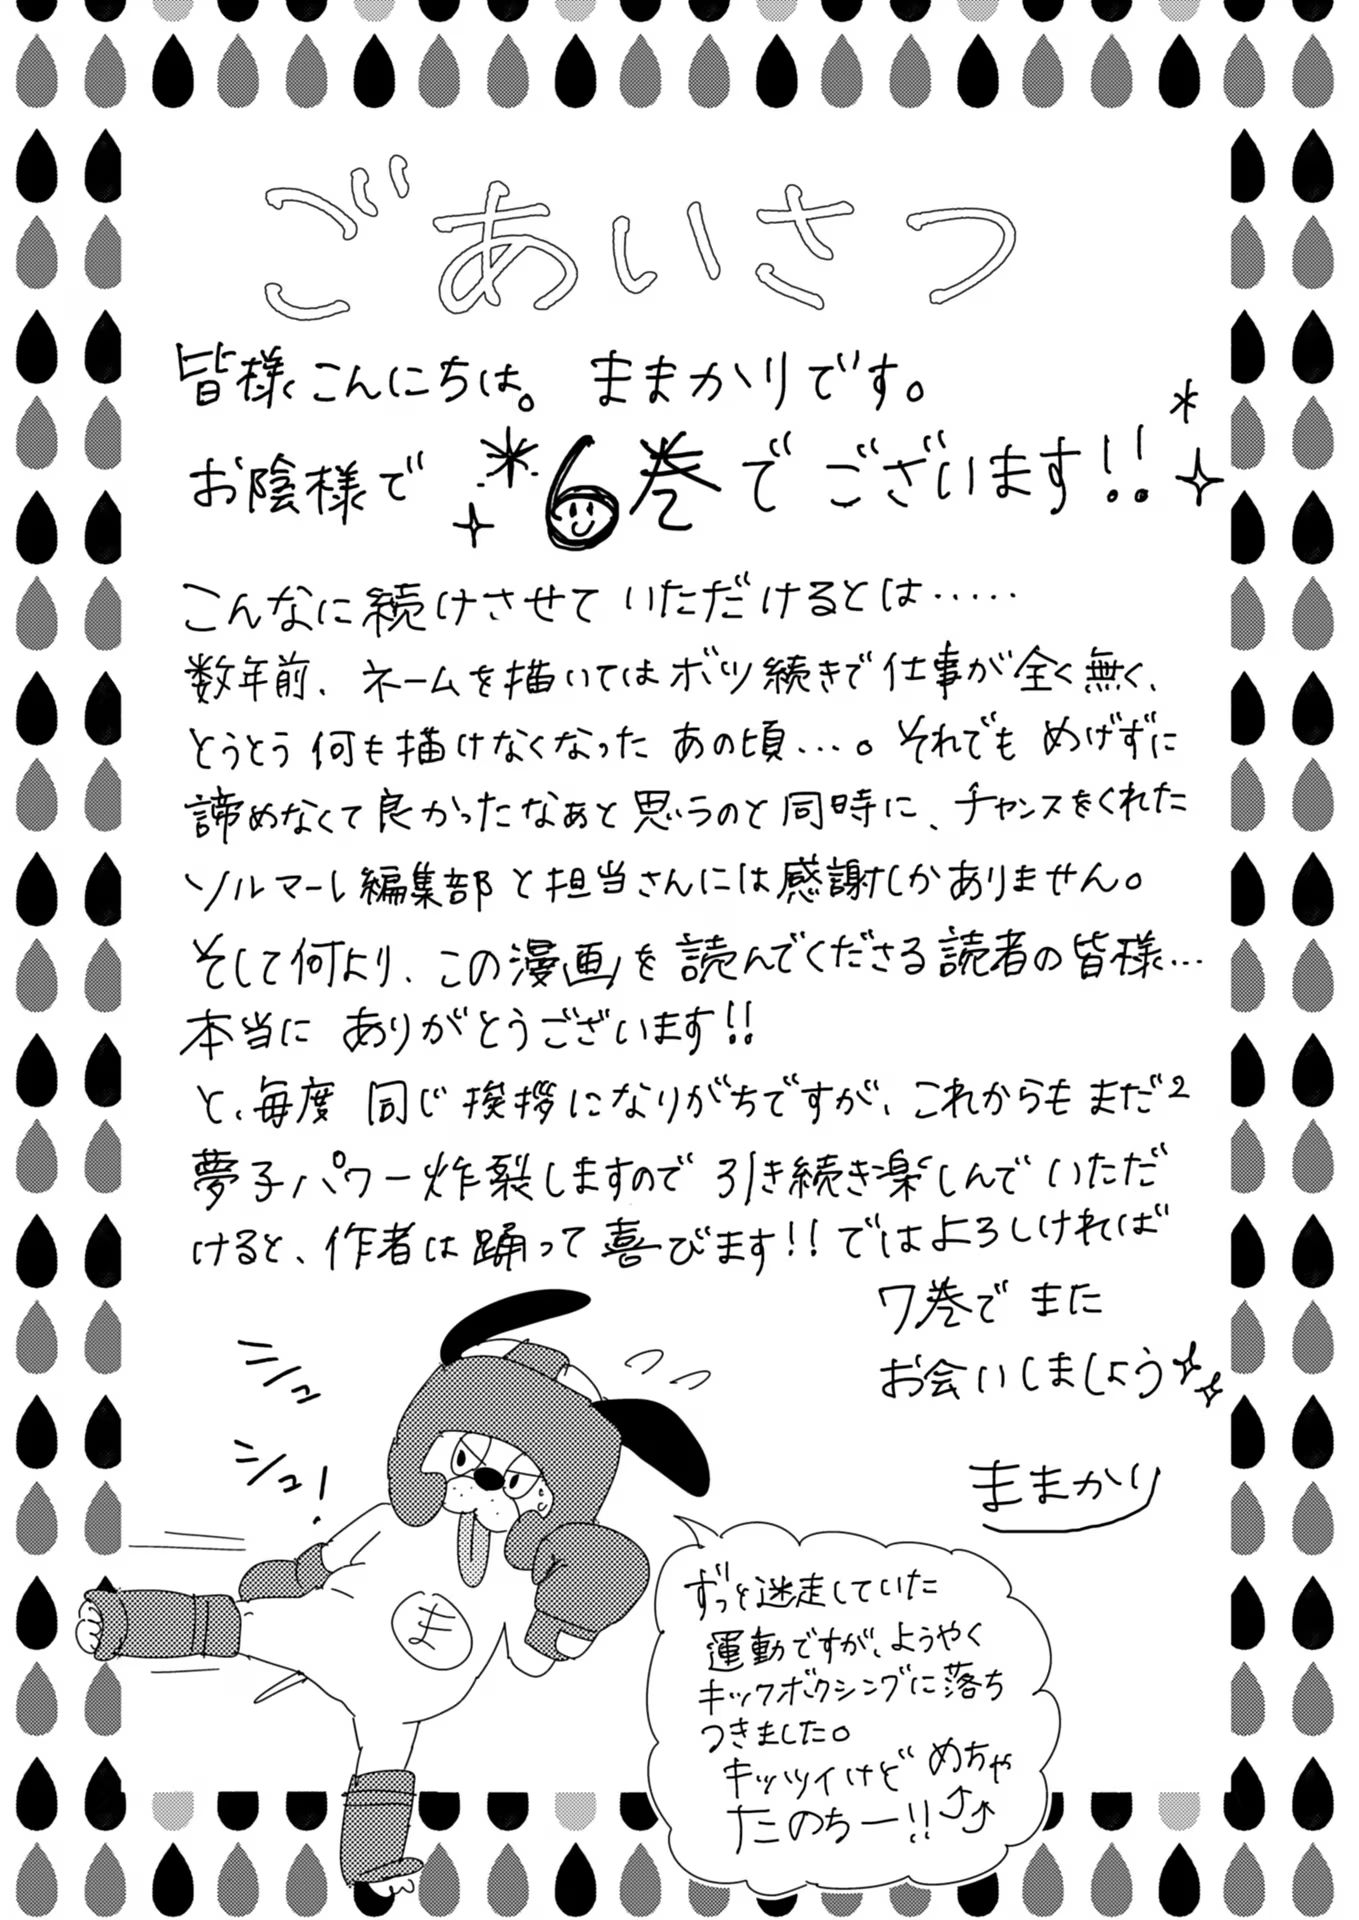 ごあいさつ
皆様こんにちは。ままかりです。
お陰様で6巻でございます!!
こんなに続けさせていただけるとは……
数年前、ネームを描いてはボツ続きで仕事が全く無く、
とうとう何も描けなくなったあの頃…。それでもめげずに
諦めなくて良かったなぁと思うのと同時に、チャンスをくれた
ソルマーレ編集部と担当さんには感謝しかありません。
そして何より、この漫画を読んでくださる読者の皆様…
本当にありがとうございます!!
と、毎度同じ挨拶になりがちですが、これからもまだ2
夢子パワー炸裂しますので引き続き楽しんでいただ
けると、作者は踊って喜びます!!ではよろしければ
7巻でまた
お会いしましょう
ままかり
シュ
シュ!
ま
ずっと迷走していた
運動ですが、ようやく
キックボクシングに落ち
つきました。
キッツイけどめちゃ
たのちー!!